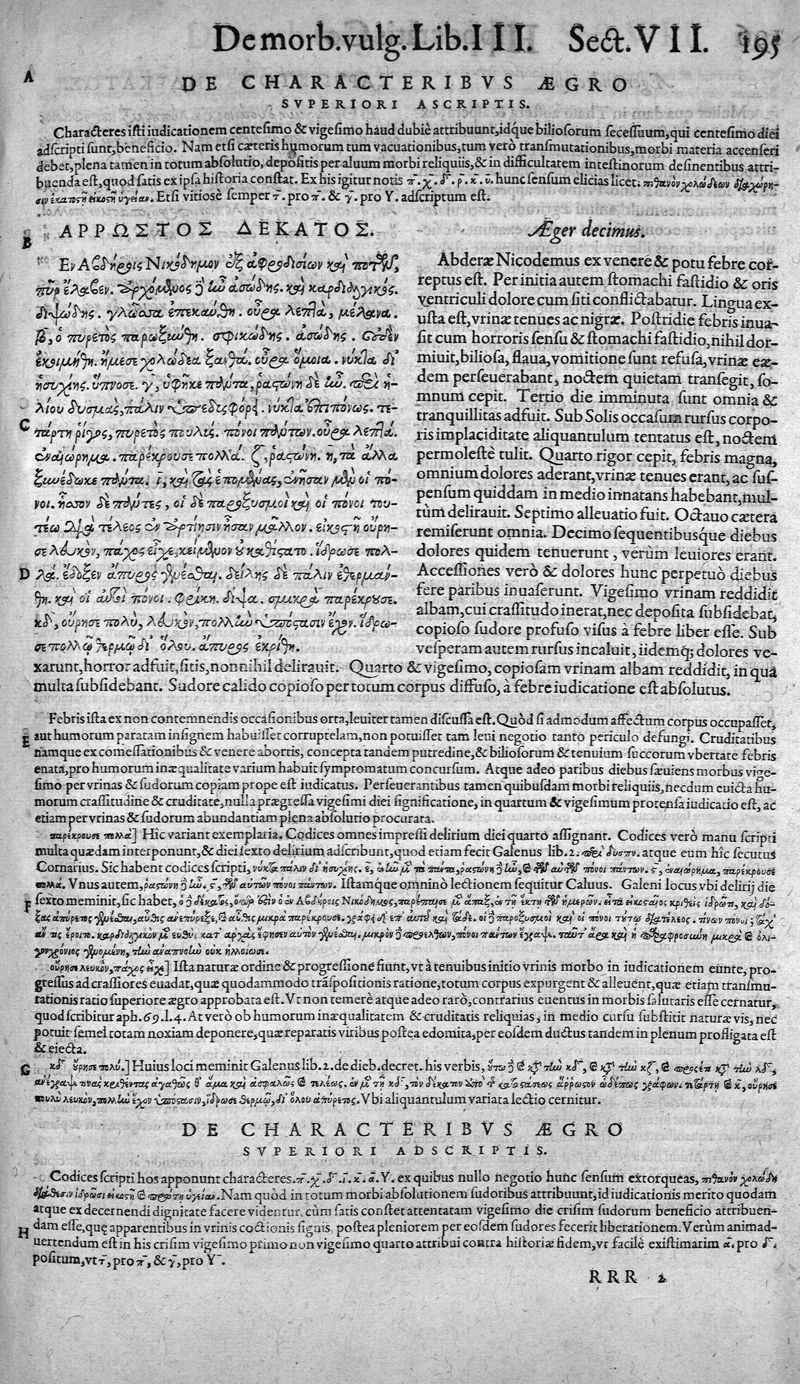 De morb. vulg. Lib. III. Sect. VII. 195
A
DE CHARACTERIBVS ÆGRO
SVPERIORI ASCRIPTIS.
Characteres isti iudicationem centesimo & vigesimo haud dubiè attribuunt, idque biliosorum secessuum, qui centesimo diei
adscripti sunt, beneficio. Nam etsi cæteris humorum tum vacuationibus, tum verò transmutationibus, morbi materia accenseri
debet, plena tamen in totum absolutio, depositis per aluum morbi reliquiis, & in difficultatem intestinorum desinentibus attri-
buenda est, quod satis ex ipsa historia constat. Ex his igitur notis π. χ. δ. ρ. κ. υ. hunc sensum elicias licet. πιθανὸν χολώδεων διαχώρη-
Etsi vitiosè semper τ. pro π. & γ. pro Υ. adscriptum est.
B
ΑΡΡΩΣΤΟΣ ΔΕΚΑΤΟΣ.
Εν Αβδήροισι Νικόδημον ἐξ ἀφροδισίων καὶ ποτῶν,
πῦρ ἔλαβεν. ἀρχόμενος δὲ ἦν ἀσώδης. καὶ καρδιαλγικός.
διψώδης. γλῶσσα ἐπεκαύθη. οὖρα λεπτὰ, μέλανα.
β, ὁ πυρετὸς παρωξύνθη. φρικώδης. ἀσώδης. οὐδὲν
ἐκοιμήθη. ἤμεσε χολώδεα ξανθά. οὖρα ὅμοια. νύκτα δι᾽
ἡσυχίης. ὕπνοσε. γ, ὑφῆκε πάντα, ῥαστώνη δὲ ἦν. περὶ ἡ-
λίου δυσμὰς, πάλιν ὑπεδυσφόρει. νύκτα ἐπιπόνως. τε-
C
τάρτη ῥῖγος, πυρετὸς πουλὺς. πόνοι πάντων. οὖρα λεπτά.
ἐναιώρημα. παρέκρουσε πολλά. ζ, ῥαστώνη. η, τὰ ἄλλα
ξυνέδωκε πάντα. ι, καὶ τὰς ἑπομένας, ἐνῆσαν μὲν οἱ πό-
νοι. ἧσσον δὲ πάντες, οἱ δὲ παροξυσμοὶ καὶ οἱ πόνοι του-
τέω διὰ τέλεος ἐν ἀρτίῃσιν ἦσαν μᾶλλον. εἰκοστῇ οὔρη-
σε λευκὸν, πάχος εἶχε, κείμενον οὐ καθίστατο. ἵδρωσε πολ-
D
λά. ἔδοξεν ἄπυρος γενέσθαι. δείλης δὲ πάλιν ἐθερμάν-
θη. καὶ οἱ αὐτοὶ πόνοι. φρίκη. δίψα. σμικρὰ παρέκρουσε.
κδ, οὔρησε πολὺ, λευκὸν, πολλὴν ὑπόστασιν ἔχον. ἵδρω-
σε πολλῷ θερμῷ δι᾽ ὅλου. ἄπυρος ἐκρίθη.
Æger decimus.
Abderæ Nicodemus ex venere & potu febre cor-
reptus est. Per initia autem stomachi fastidio & oris
ventriculi dolore cum siti conflictabatur. Lingua ex-
usta est, vrinæ tenues ac nigræ. Postridie febris inua-
sit cum horroris sensu & stomachi fastidio, nihil dor-
miuit, biliosa, flaua, vomitione sunt refusa, vrinæ eæ-
dem perseuerabant, noctem quietam transegit, so-
mnum cepit. Tertio die imminuta sunt omnia &
tranquillitas adfuit. Sub Solis occasum rursus corpo-
ris implaciditate aliquantulum tentatus est, noctem
permolestè tulit. Quarto rigor cepit, febris magna,
omnium dolores aderant, vrinæ tenues erant, ac sus-
pensum quiddam in medio innatans habebant, mul-
tùm delirauit. Septimo alleuatio fuit. Octauo cætera
remiserunt omnia. Decimo sequentibusque diebus
dolores quidem tenuerunt, verùm leuiores erant.
Accessiones verò & dolores hunc perpetuò diebus
fere paribus inuaserunt. Vigesimo vrinam reddidit
albam, cui crassitudo inerat, nec deposita subsidebat,
copioso sudore profuso visus à febre liber esse. Sub
vesperam autem rursus incaluit, iidemq; dolores ve-
xarunt, horror adfuit, sitis, nonnihil delirauit. Quarto & vigesimo, copiosam vrinam albam reddidit, in qua
multa subsidebant. Sudore calido copioso per totum corpus diffuso, à febre iudicatione est absolutus.
Febris ista ex non contemnendis occasionibus orta, leuiter tamen discussa est. Quòd si admodum affectum corpus occupasset,
E
aut humorum paratam insignem habuisset corruptelam, non potuisset tam leui negotio tanto periculo defungi. Cruditatibus
namque ex comessationibus & venere abortis, concepta tandem putredine, & biliosorum & tenuium succorum vbertate febris
enata, pro humorum inæqualitate varium habuit symptomatum concursum. Atque adeo paribus diebus sæuiens morbus vige-
simo per vrinas & sudorum copiam prope est iudicatus. Perseuerantibus tamen quibusdam morbi reliquiis, necdum euicta hu-
morum crassitudine & cruditate, nulla prægressa vigesimi diei significatione, in quartum & vigesimum protensa iudicatio est, ac
etiam per vrinas & sudorum abundantiam plena absolutio procurata.
παρέκρουσε πολλὰ] Hic variant exemplaria. Codices omnes impressi delirium diei quarto assignant. Codices verò manu scripti
multa quædam interponunt, & diei sexto delirium adscribunt, quod etiam fecit Galenus lib. 2. περὶ δυσπν. atque eum hîc secutus
Cornarius. Sic habent codices scripti, νύκτα πάλιν δι᾽ ἡσυχίης. ε, ῥαστώνη πόνοι πάντων. ς, ἐναιώρημα, παρέκρουσε
πολλά. Vnus autem, ῥαστώνη πόνοι πάντων. Istamque omninò lectionem sequitur Caluus. Galeni locus vbi delirij die
F
sexto meminit, sic habet, Αβδήροις
ουρησε λευκὸν, πάχος εἶχε] Ista naturæ ordine & progressione fiunt, vt à tenuibus initio vrinis morbo in iudicationem eunte, pro-
gressus ad crassiores euadat, quæ quodammodo trãspositionis ratione, totum corpus expurgent & alleuent, quæ etiam transmu-
tationis ratio superiore ægro approbata est. Vt non temerè atque adeo rarò, contrarius euentus in morbis salutaris esse cernatur,
quod scribitur aph. 69. l. 4. At verò ob humorum inæqualitatem & cruditatis reliquias, in medio cursu substitit naturæ vis, nec
potuit semel totam noxiam deponere, quæ reparatis viribus postea edomita, per eosdem ductus tandem in plenum profligata est
& eiecta.
G
κδ οὔρησε πολύ.] Huius loci meminit Galenus lib. 2. de dieb. decret. his verbis,
πουλὺ λευκὸν, πολλὴν ἔχον ὑπόστασιν, ἵδρωσε θερμῷ, δι᾽ ὅλου ἄπυρετος. Vbi aliquantulum variata lectio cernitur.
DE CHARACTERIBVS ÆGRO
SVPERIORI ADSCRIPTIS.
Codices scripti hos apponunt characteres. π. χ. δ. ι. κ. α. Υ. ex quibus nullo negotio hunc sensum extorqueas, πιθανὸν χολώδη
Nam quòd in totum morbi absolutionem sudoribus attribuunt, id iudicationis merito quodam
atque ex decernendi dignitate facere videntur, cùm satis constet attentatam vigesimo die crisim sudorum beneficio attribuen-
dam esse, quę apparentibus in vrinis coctionis signis, postea pleniorem per eosdem sudores fecerit liberationem. Verùm animad-
H
uertendum est in his crisim vigesimo primo non vigesimo quarto attribui contra historiæ fidem, vt facilè existimarim α. pro δ.
positum, vt τ, pro π, & γ, pro Υ.
RRR 2